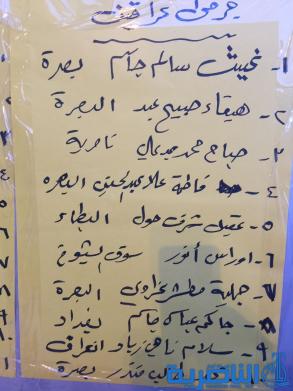 جرحى عراقيين
١- نحيث سالم جاسم بصرة
٢- هيفاء صبيح عبد البصرة
٣- صباح محمد عبد علي ناصرية
٤- فاطمة علاء عبد الحسن البصره
٥- عقيل شرقي حول البطاء
٦- اوراس أنور سوق الشيوخ
٧- جميلة مطشر عزاوي البصرة
٨- جاكي عباس جاسم بغداد
٩- سلام ناهي زياد
منذر بصرة
الناصرية